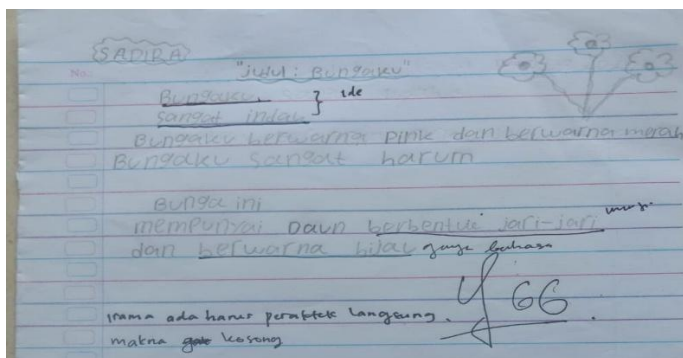 SADIRA
No:
"judul: Bungaku"
Bungaku
sangat indah } ide
Bungaku berwarna pink dan berwarna merah
Bungaku sangat harum
Bunga ini
mempunyai Daun berbentuk jari-jari
dan berwarna hijau gaya bahasa
66
irama ada harus peraktek langsung.
makna kosong